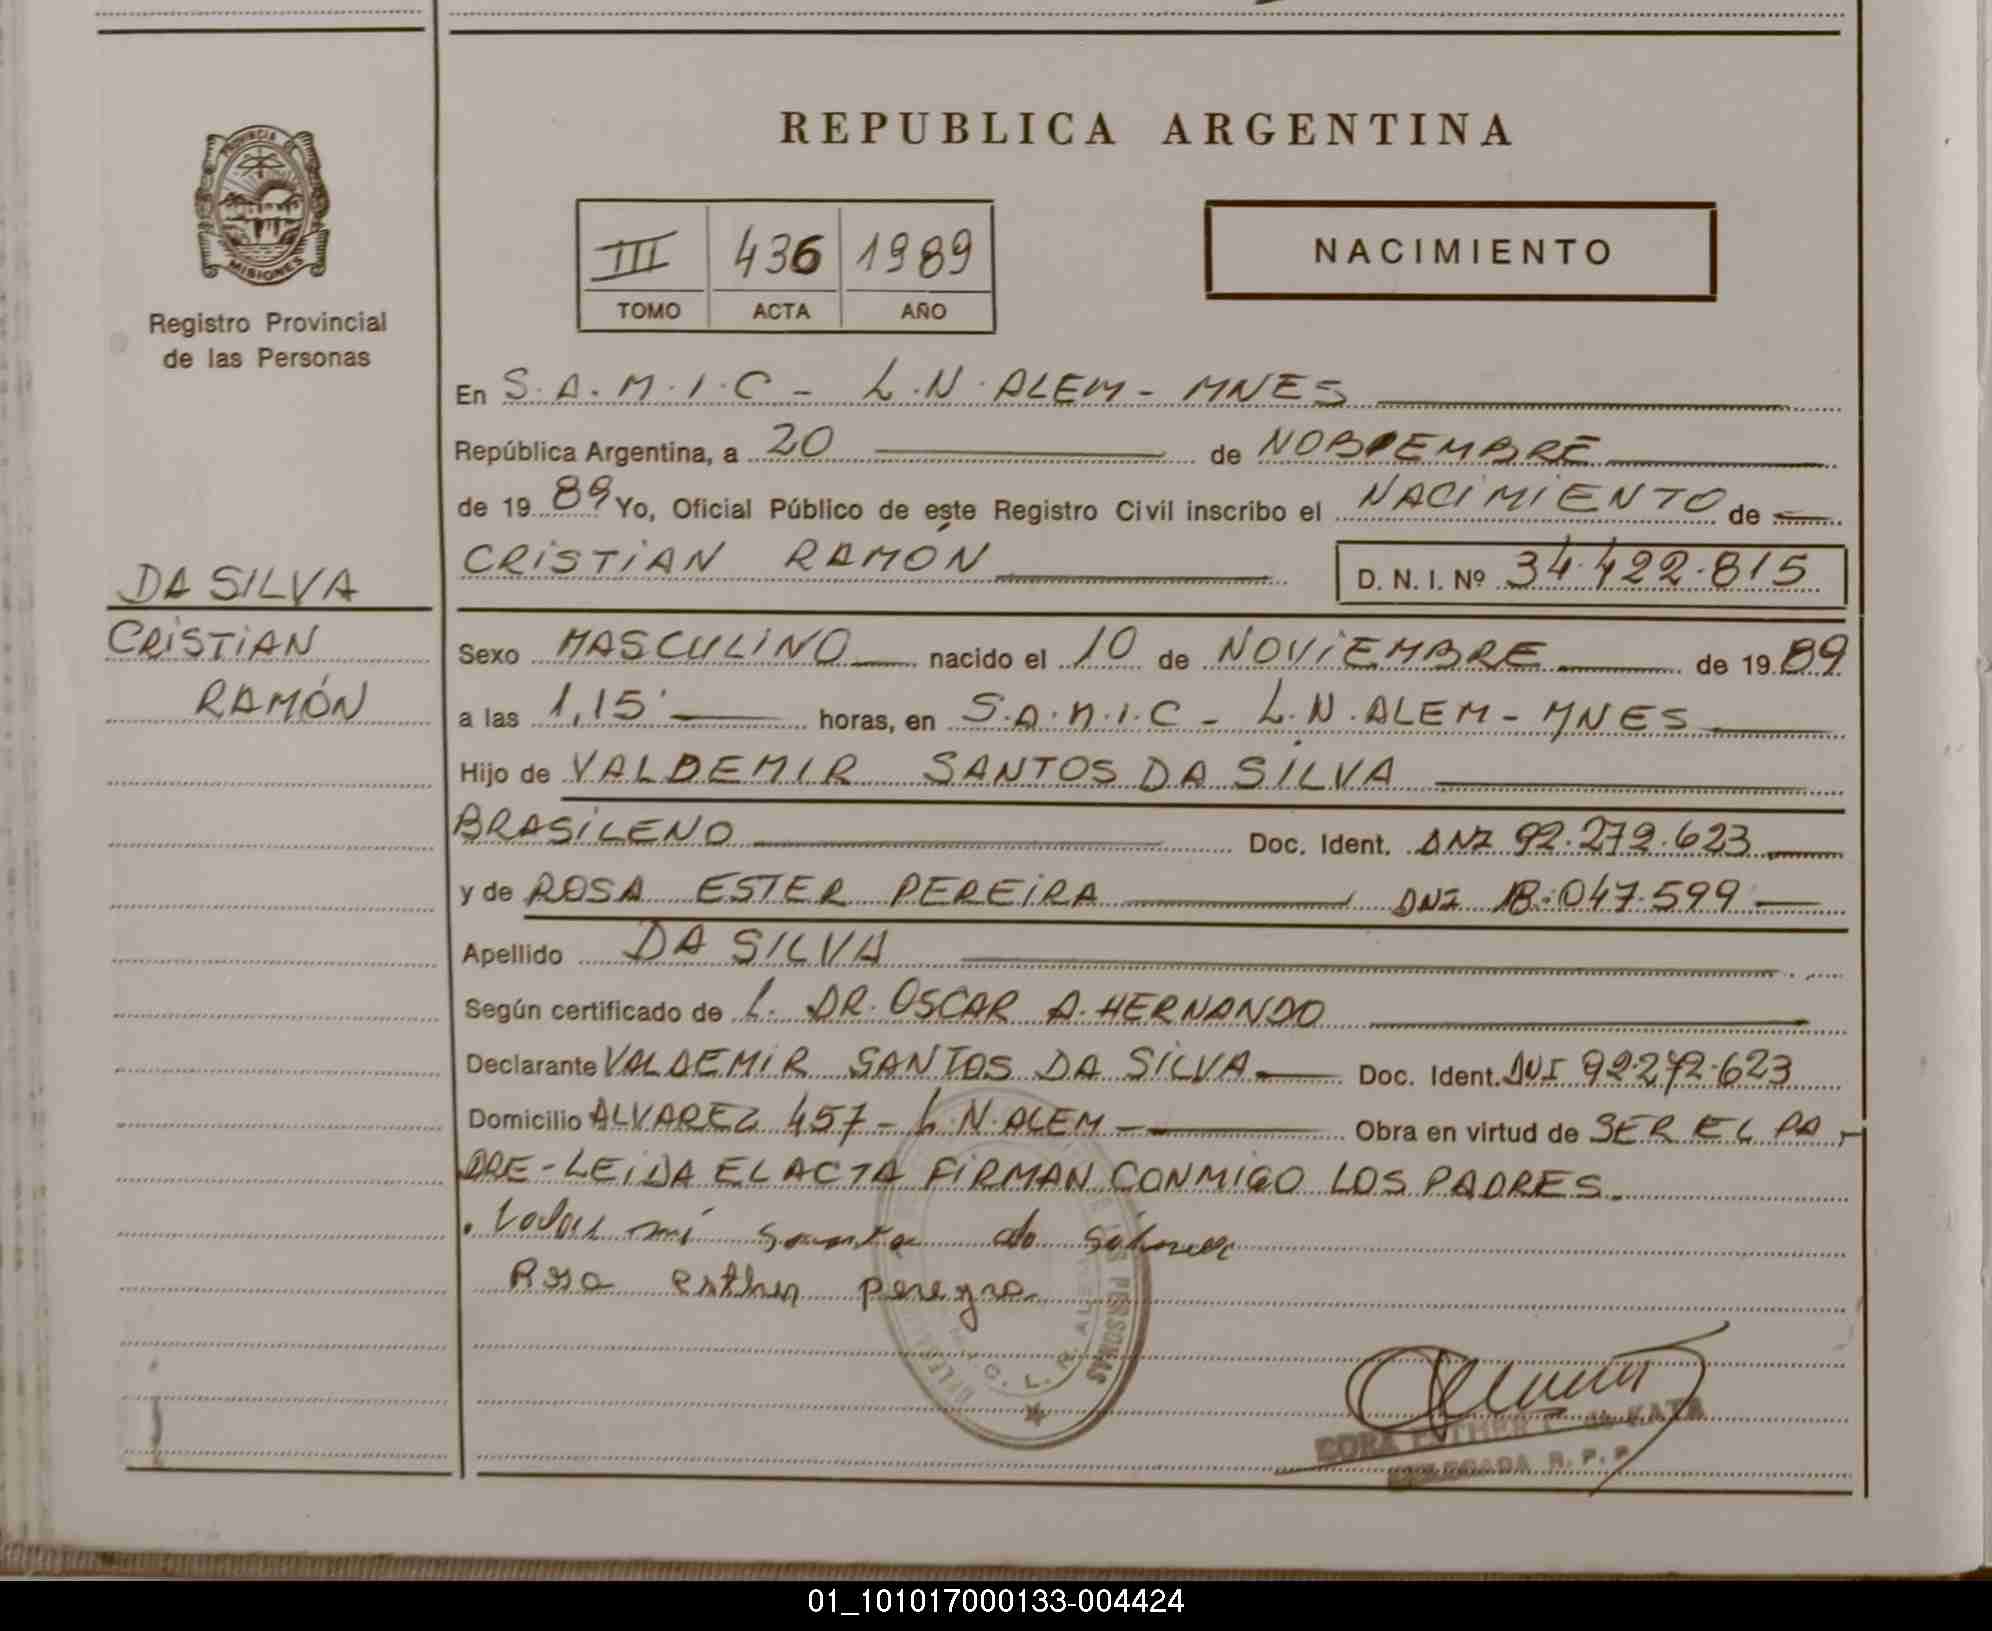 REPUBLICA ARGENTINA
PROVINCIA D
MISIONES
Registro Provincial
de las Personas
III 436 1989
TOMO ACTA AÑO
NACIMIENTO
En S.A.M.I.C - L.N. ALEM - MNES
República Argentina, a 20 de NOBIEMBRE
de 19 89 Yo, Oficial Público de este Registro Civil inscribo el NACIMIENTO de
CRISTIAN RAMÓN D. N. I. Nº 34.422.815
DA SILVA
CRISTIAN
RAMÓN
Sexo MASCULINO nacido el 10 de NOVIEMBRE de 19 89
a las 1,15' horas, en S.A.M.I.C - L.N. ALEM - MNES
Hijo de VALDEMIR SANTOS DA SILVA
BRASILENO Doc. Ident. DNI 92.272.623
y de ROSA ESTER PEREIRA DNI 18.047.599
Apellido DA SILVA
Según certificado de L. DR. OSCAR A. HERNANDO
Declarante VALDEMIR SANTOS DA SILVA Doc. Ident. DNI 92.272.623
Domicilio ALVAREZ 457 - L.N. ALEM - Obra en virtud de SER EL PA-
DRE - LEIDA EL ACTA FIRMAN CONMIGO LOS PADRES.
Rosa esther pereyra
PERSONAS
L. N. ALEM
ESTHER de KATA
DELEGADA R. P. P.
01_101017000133-004424